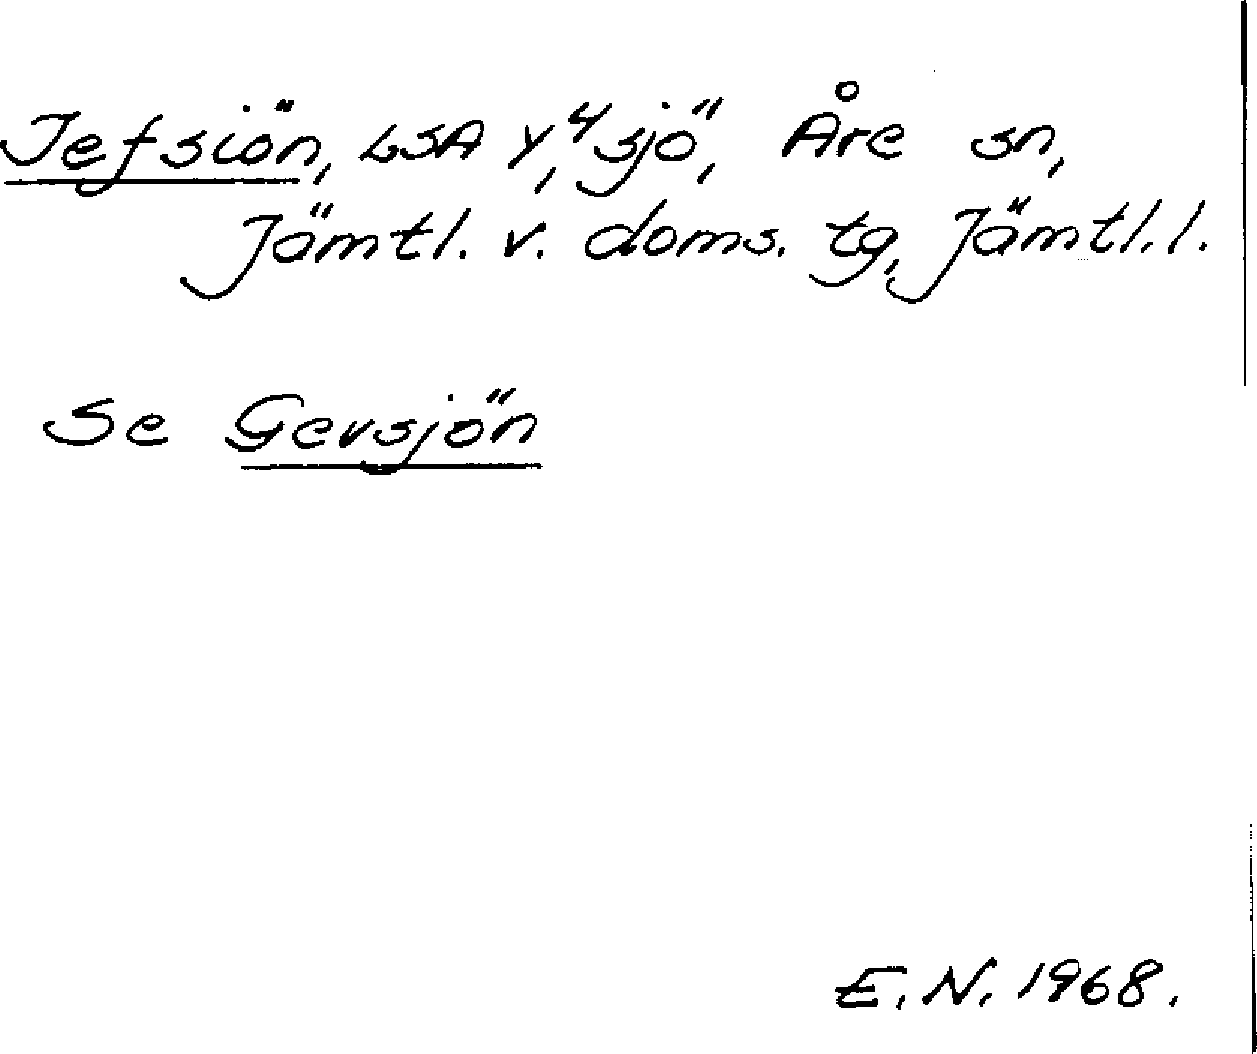 Jefsiön, LSA Y,4 sjö, Åre sn,
Jämtl. v. doms. tg, Jämtl. l.
Se Gevsjön
E. N. 1968.